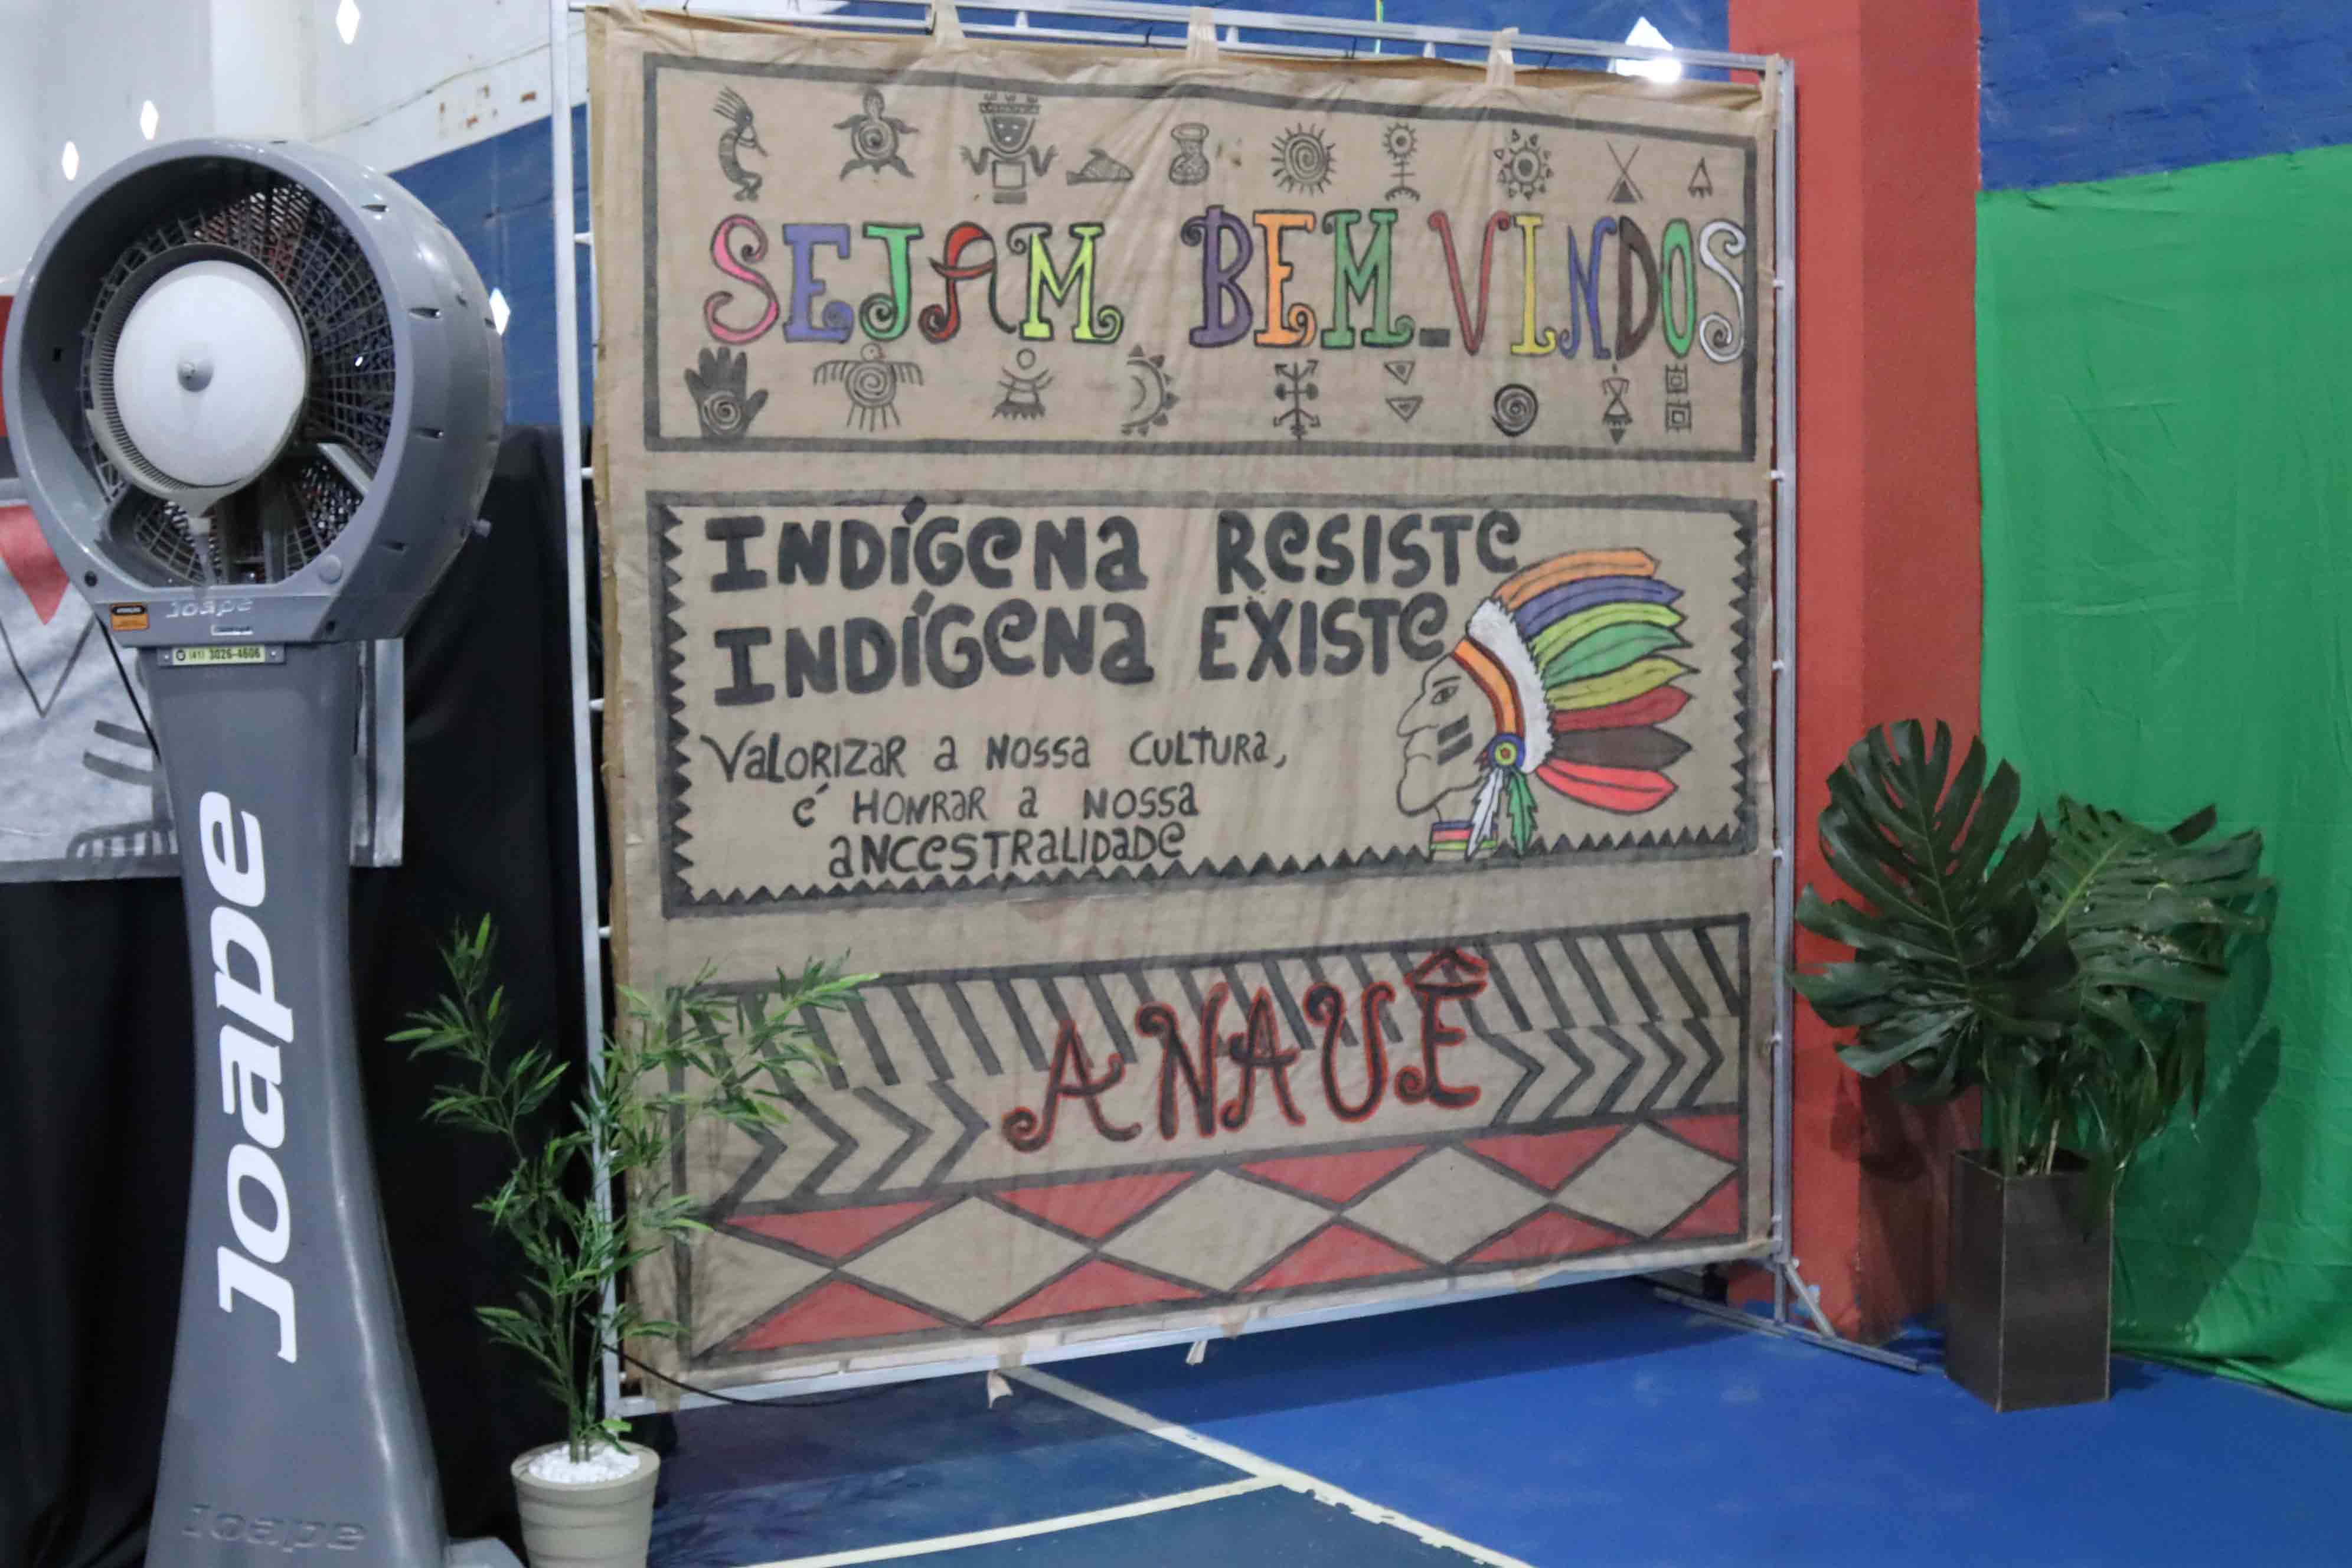 SEJAM BEM-VINDOS
INDÍGENA RESISTE
INDÍGENA EXISTE
VALORIZAR A NOSSA CULTURA,
É HONRAR A NOSSA
ANCESTRALIDADE
ANAUÊ
Joape
(41) 3026-4606
Joape
Joape